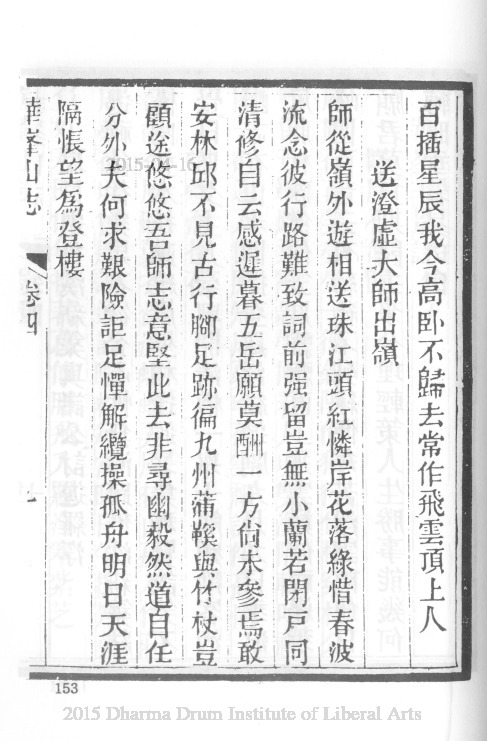 百播星辰我今高臥不歸去常作飛雲頂上人
送澄虛大師出嶺
師從嶺外遊相送珠江頭紅憐岸花落綠惜春波
流念彼行路難致詞前强留豈無小蘭若閉戸同
清修自云感遲暮五岳願莫酬一方尙未參焉敢
安林邱不見古行腳足跡徧九州蒲鞵與竹杖豈
顧途悠悠吾師志意堅此去非尋幽毅然道自任
分外夫何求艱險詎足憚解纜操孤舟明日天涯
隔悵望為登樓
華峯山志
卷四
153
2015-04-16
2015 Dharma Drum Institute of Liberal Arts